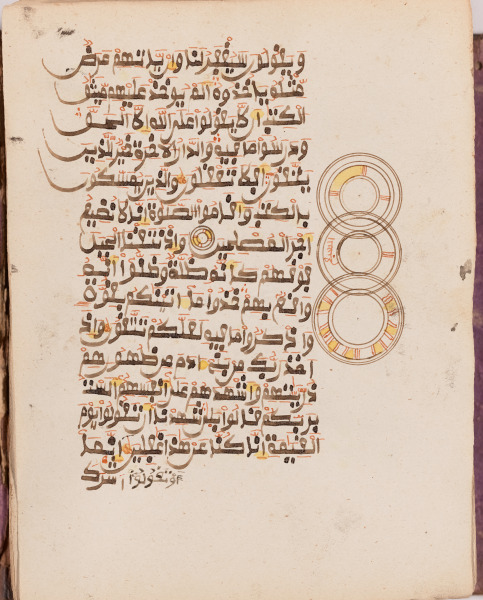 ويقولون سيغفر لنا وان ياتهم عرض
مثله ياخذوه الم يوخذ عليهم ميثق
الكتب ان لا يقولوا على الله الا الحق
ودرسوا ما فيه والدار الاخرة خير للذين
يتقون افلا تعقلون والذين يمسكون
بالكتب واقاموا الصلوة انا لا نضيع
اجر المصلحين واذ نتقنا الجبل
فوقهم كانه ظلة وظنوا انه
واقع بهم خذوا ما اتينكم بقوة
واذكروا ما فيه لعلكم تتقون واذ
اخذ ربك من بني ادم من ظهورهم
ذريتهم واشهدهم على انفسهم الست
بربكم قالوا بلى شهدنا ان تقولوا يوم
القيمة انا كنا عن هذا غفلين انما
او تقولوا اشرك